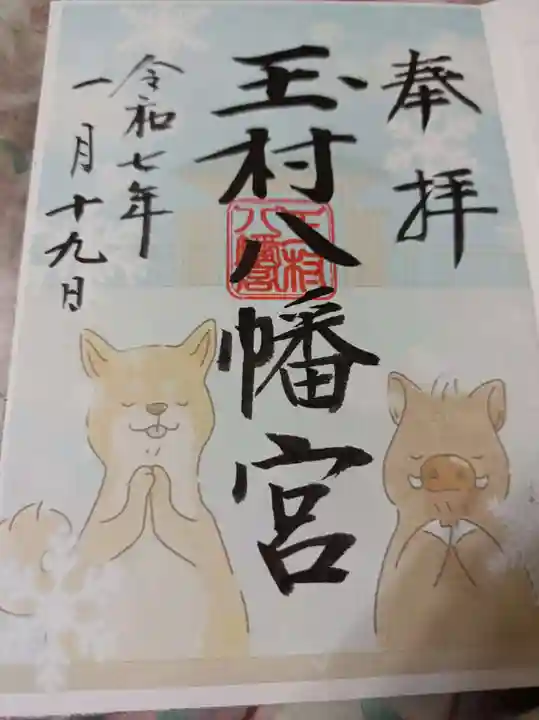 奉拝
玉村八幡宮
玉村
八幡
令和七年
一月十九日